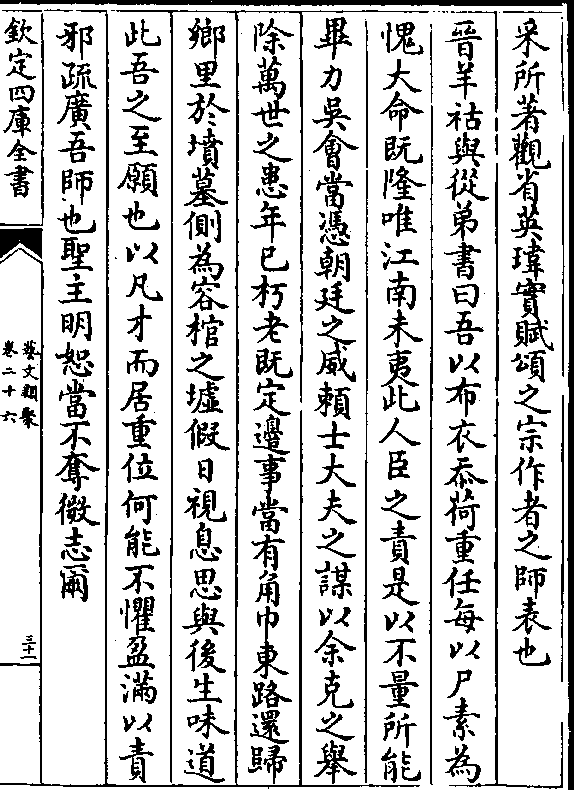 采所著觀省英瑋實賦頌之宗作者之師表也
晉羊祜與從弟書曰吾以布衣忝荷重任每以尸素為
愧大命既隆唯江南未夷此人臣之責是以不量所能
畢力吳會當憑朝廷之威賴士大夫之謀以余克之舉
除萬世之患年已朽老既定邊事當有角巾東路還歸
鄉里於墳墓側為容棺之墟假日視息思與後生味道
此吾之至願也以凡才而居重位何能不懼盈滿以責
邪疏廣吾師也聖主明恕當不奪微志爾
欽定四庫全書
藝文類聚
卷二十六
三十一